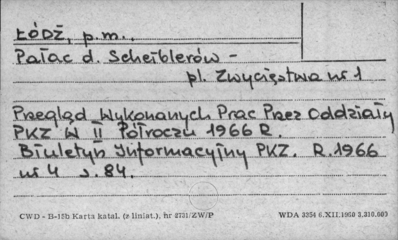 ŁÓDŹ, p.m.,
Pałac d. Scheiblerów -
pl. Zwycięstwa nr 1
Przegląd Wykonanych Prac Przez Oddziały
PKZ W II Półroczu 1966 R.
Biuletyn Informacyjny PKZ. R.1966
nr 4 s. 84.
CWD - B-15b Karta katal. (z liniat.), nr 8731/ZW/P WDA 3354 6.XII.1960 3.310.000